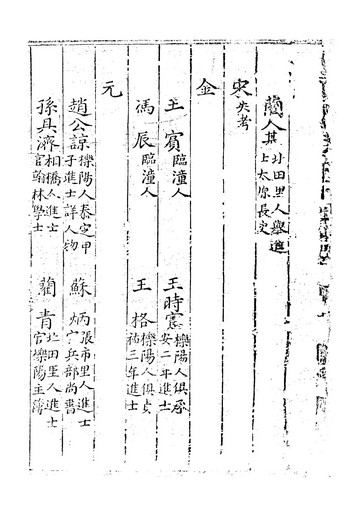 藺人其北田里人舉進士太原長史
宋失考
金
王賓臨潼人 王時憲櫟陽人俱承安二年進士
馮辰臨潼人 王格櫟陽人俱貞祐三年進士
元
趙公諒櫟陽人泰定甲子進士詳人物 蘇炳張市里人進士官兵部尚書
孫具濟相橋人進士官翰林學士 藺青北田里人進士官櫟陽主簿